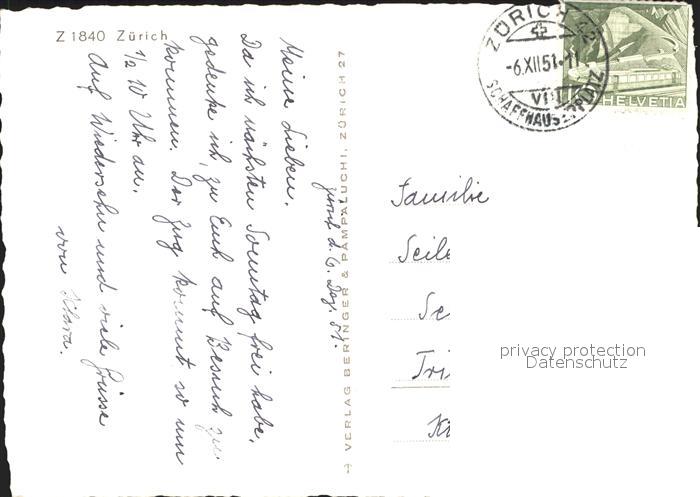 Z 1840 Zürich
Zürich d. 6. Dez. 51.
Meine Lieben.
Da ich nächsten Sonntag frei habe,
gedenke ich, zu Euch auf Besuch zu
kommen. Der Zug kommt so um
1/2 10 Uhr an.
Auf Wiedersehn und viele Grüsse
von Klara.
VERLAG BERINGER & PAMPALUCHI, ZÜRICH 27
ZÜRICH 42
-6.XII.51.-11
VIII
SCHAFFHAUSERPLATZ
HELVETIA
Familie
Seile
Se
Tri
Ki
privacy protection
Datenschutz